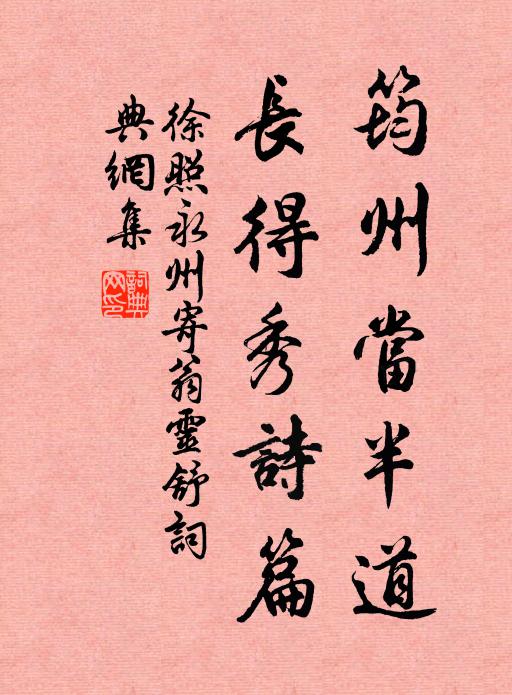 筠州當半道
長得秀詩篇
徐照永州寄翁靈舒詞
典網集
詞典網印